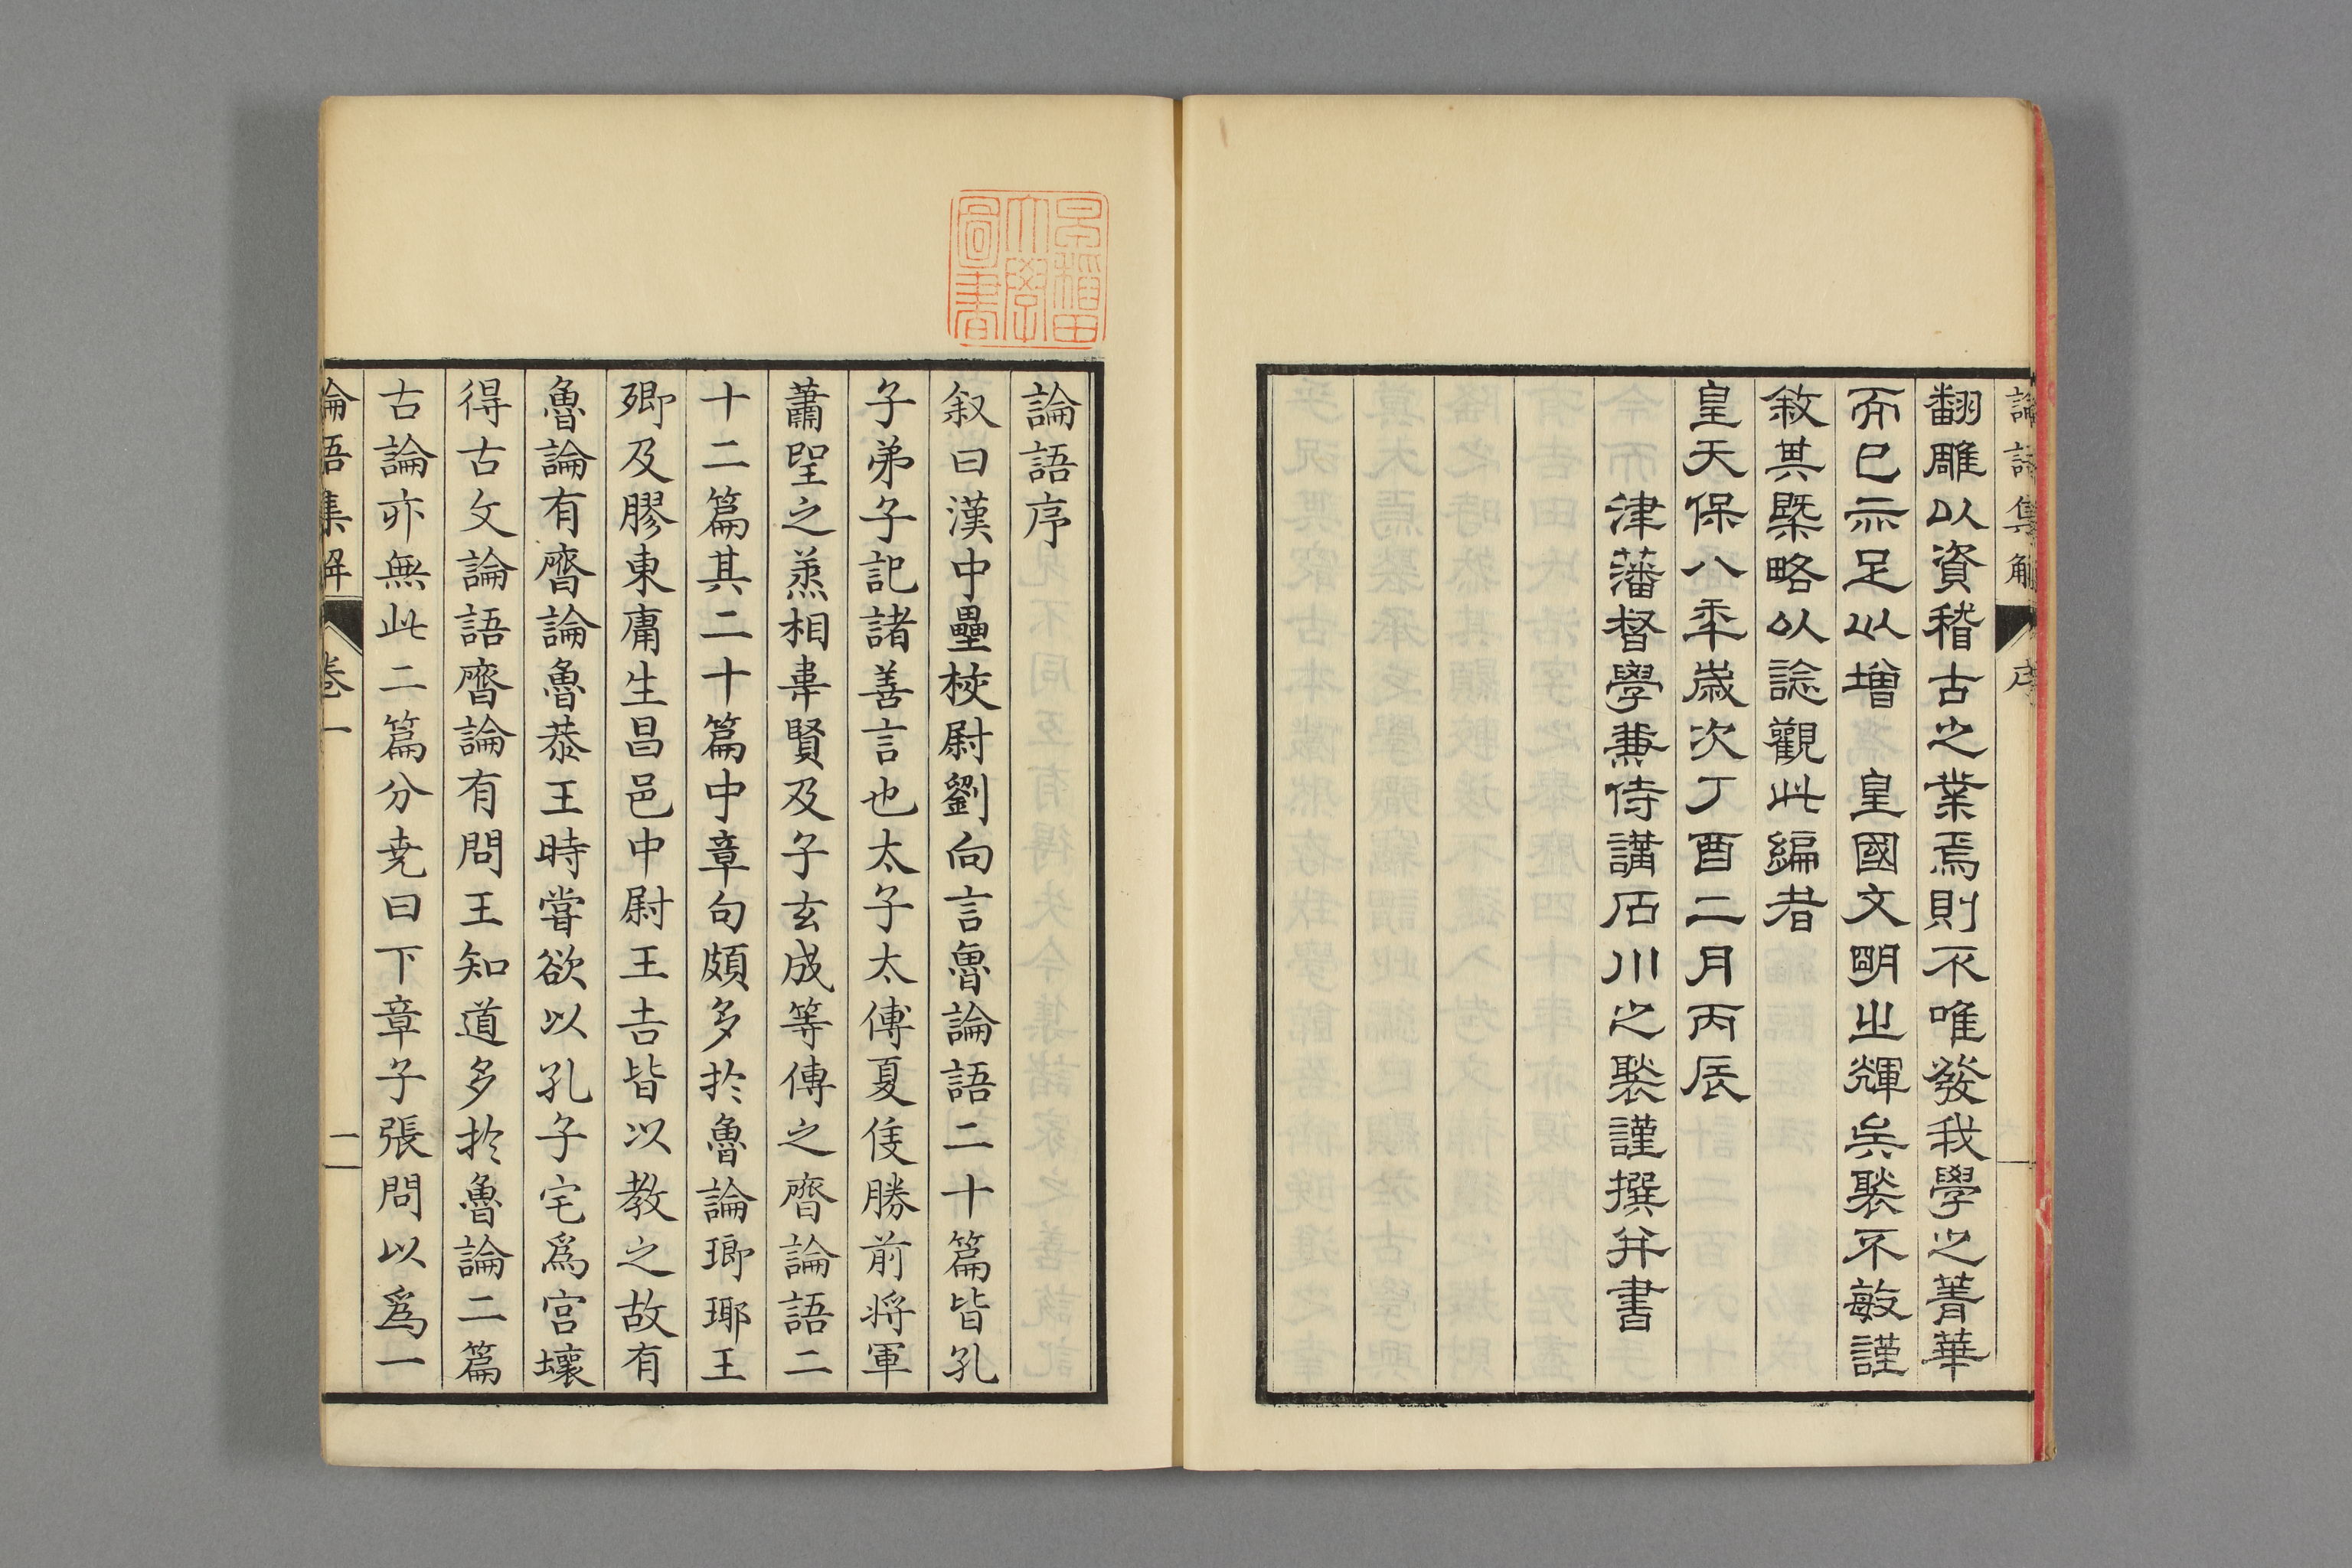 論語集解 序
翻雕以資稽古之業焉則不唯發我學之菁華
而已亦足以增 皇國文明之輝矣褧不敏謹
敘其槩略以諗觀此編者
皇天保八秊歲次丁酉二月丙辰
津藩督學兼侍講石川之褧謹撰并書
早稲田大學圖書
論語序
叙曰漢中壘校尉劉向言魯論語二十篇皆孔
子弟子記諸善言也太子太傅夏侯勝前将軍
蕭望之丞相韋賢及子玄成等傳之齊論語二
十二篇其二十篇中章句頗多扵魯論瑯瑘王
卿及膠東庸生昌邑中尉王吉皆以教之故有
魯論有齊論魯恭王時嘗欲以孔子宅爲宫壞
得古文論語齊論有問王知道多扵魯論二篇
古論亦無此二篇分尭曰下章子張問以爲一
論語集解 卷一 一